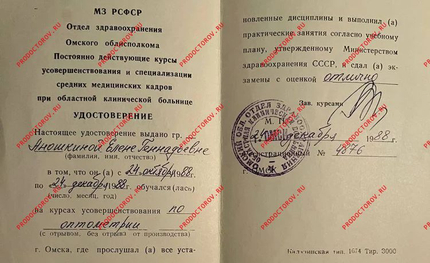 МЗ РСФСР
Отдел здравоохранения
Омского облисполкома
Постоянно действующие курсы
усовершенствования и специализации
средних медицинских кадров
при областной клинической больнице
УДОСТОВЕРЕНИЕ
Настоящее удостоверение выдано гр.
Анюшкиной Елене Геннадьевне
(фамилия, имя, отчество)
в том, что он (а) с 24 октября 1988 г.
по 24 декабря 1988 г. обучался (лась)
(число, месяц, год)
на курсах усовершенствования по
оптометрии
(с отрывом, без отрыва от производства)
г. Омска, где прослушал (а) все уста-
новленные дисциплины и выполнил (а)
практические занятия согласно учебному
плану, утвержденному Министерством
здравоохранения СССР, и сдал (а) эк-
замены с оценкой отлично
Зав. курсами
М. П.
24 декабря 1988 г.
№ 4576
Калачинская тип. 1674 Тир. 3000
PRODOCTOROV.RU